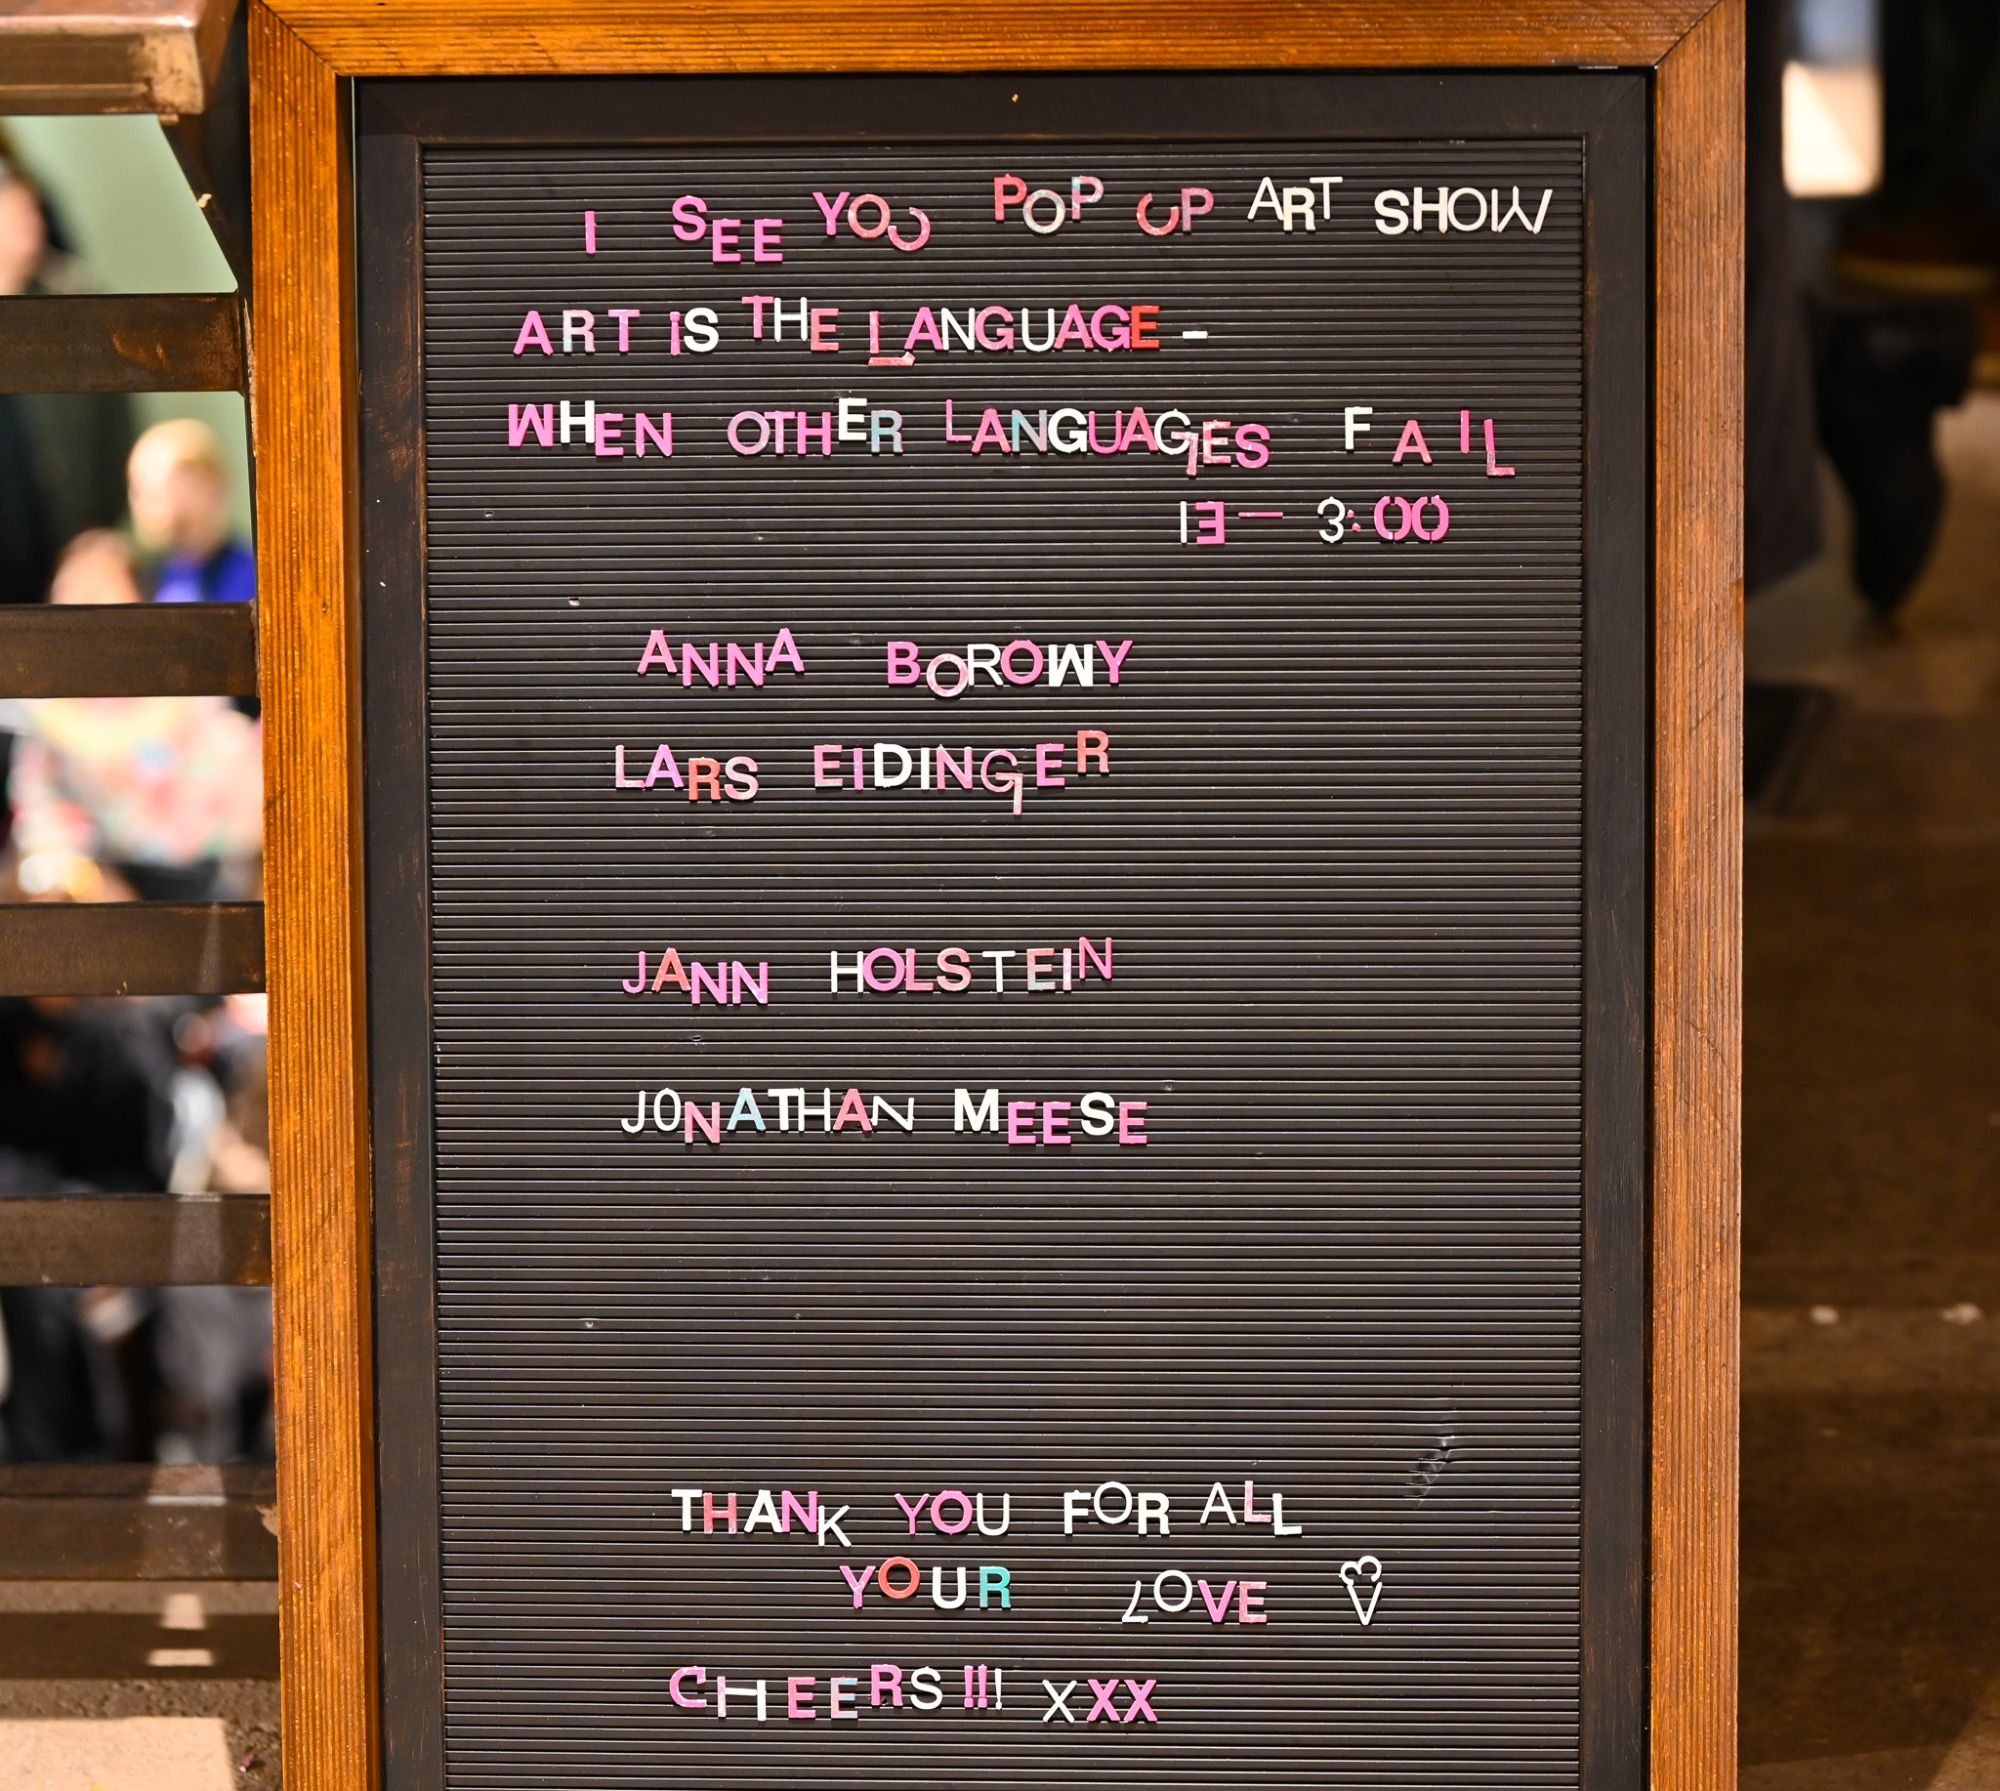 I SEE YOU POP UP ART SHOW
ART IS THE LANGUAGE -
WHEN OTHER LANGUAGES FAIL
13 - 3:00
ANNA BOROWY
LARS EIDINGER
JANN HOLSTEIN
JONATHAN MEESE
THANK YOU FOR ALL
YOUR LOVE
CHEERS!!! XXX